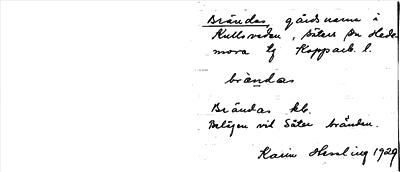 Brändas, gårdsnamn i
Kullsveden, Säters sn Hede-
mora tg Kopparb. l.
brändas
Brändas kb.
Belägen vid Säter bränden.
Karin Hessling 1929